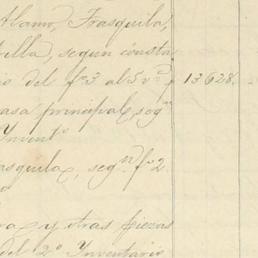 Alamo, Frasquila,
illa, segun constr
io del fº 3 al 5 vº, 13628.
asa principal, segn
Inventº
asquila, segn fº 2
o
ra y otras piezas
del 2º Inventario